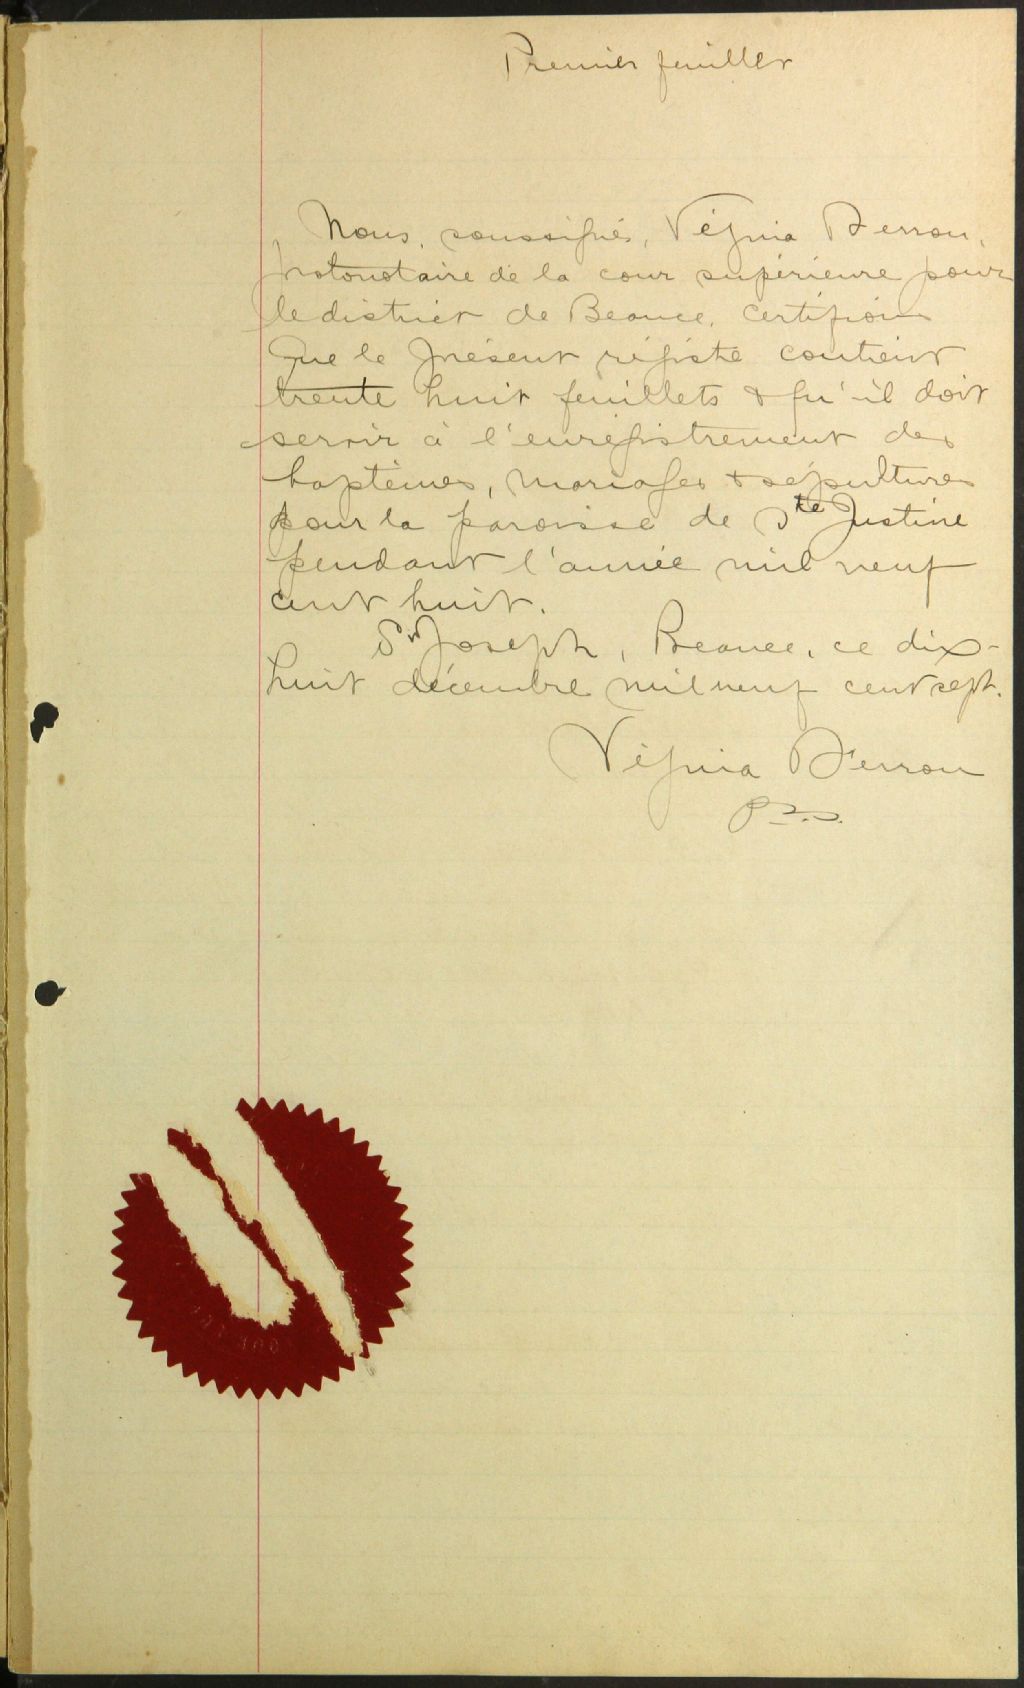 Premier feuillet
Nous, soussigné, Vézina
protonotaire de la cour supérieure pour
le district de Beauce, certifions
que le présent régistre contient
trente huit feuillets & qu'il doit
servir à l'enregistrement des
baptêmes, mariages & sépultures
pour la paroisse de Ste Justine
pendant l'année mil neuf
cent huit.
St Joseph, Beauce, ce dix-
huit décembre mil neuf cent sept.
Vézina
P.C.S.